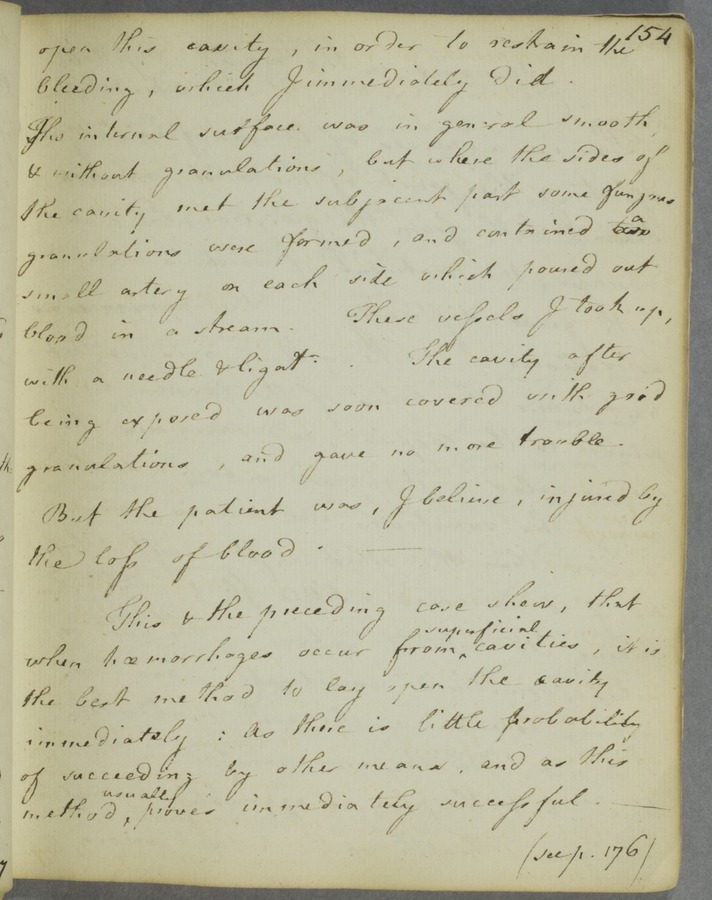 154
open this cavity, in order to restrain the
bleeding, which I immediately did.
The internal surface was in general smooth,
& without granulations, but where the sides of
the cavity met the subjacent part some fungous
granulations were formed, and contained a
small artery on each side which poured out
blood in a stream. These vessels I took up,
with a needle & ligat.
The cavity after
being exposed was soon covered with good
granulations, and gave no more trouble.
But the patient was, I believe, injured by
the loss of blood.
This & the preceding case shew, that
when hæmorrhages occur from superficial cavities, it is
the best method to lay open the cavity
immediately: As there is little probability
of succeeding by other means, and as this
method, usually proves immediately successful.
(see p. 176)